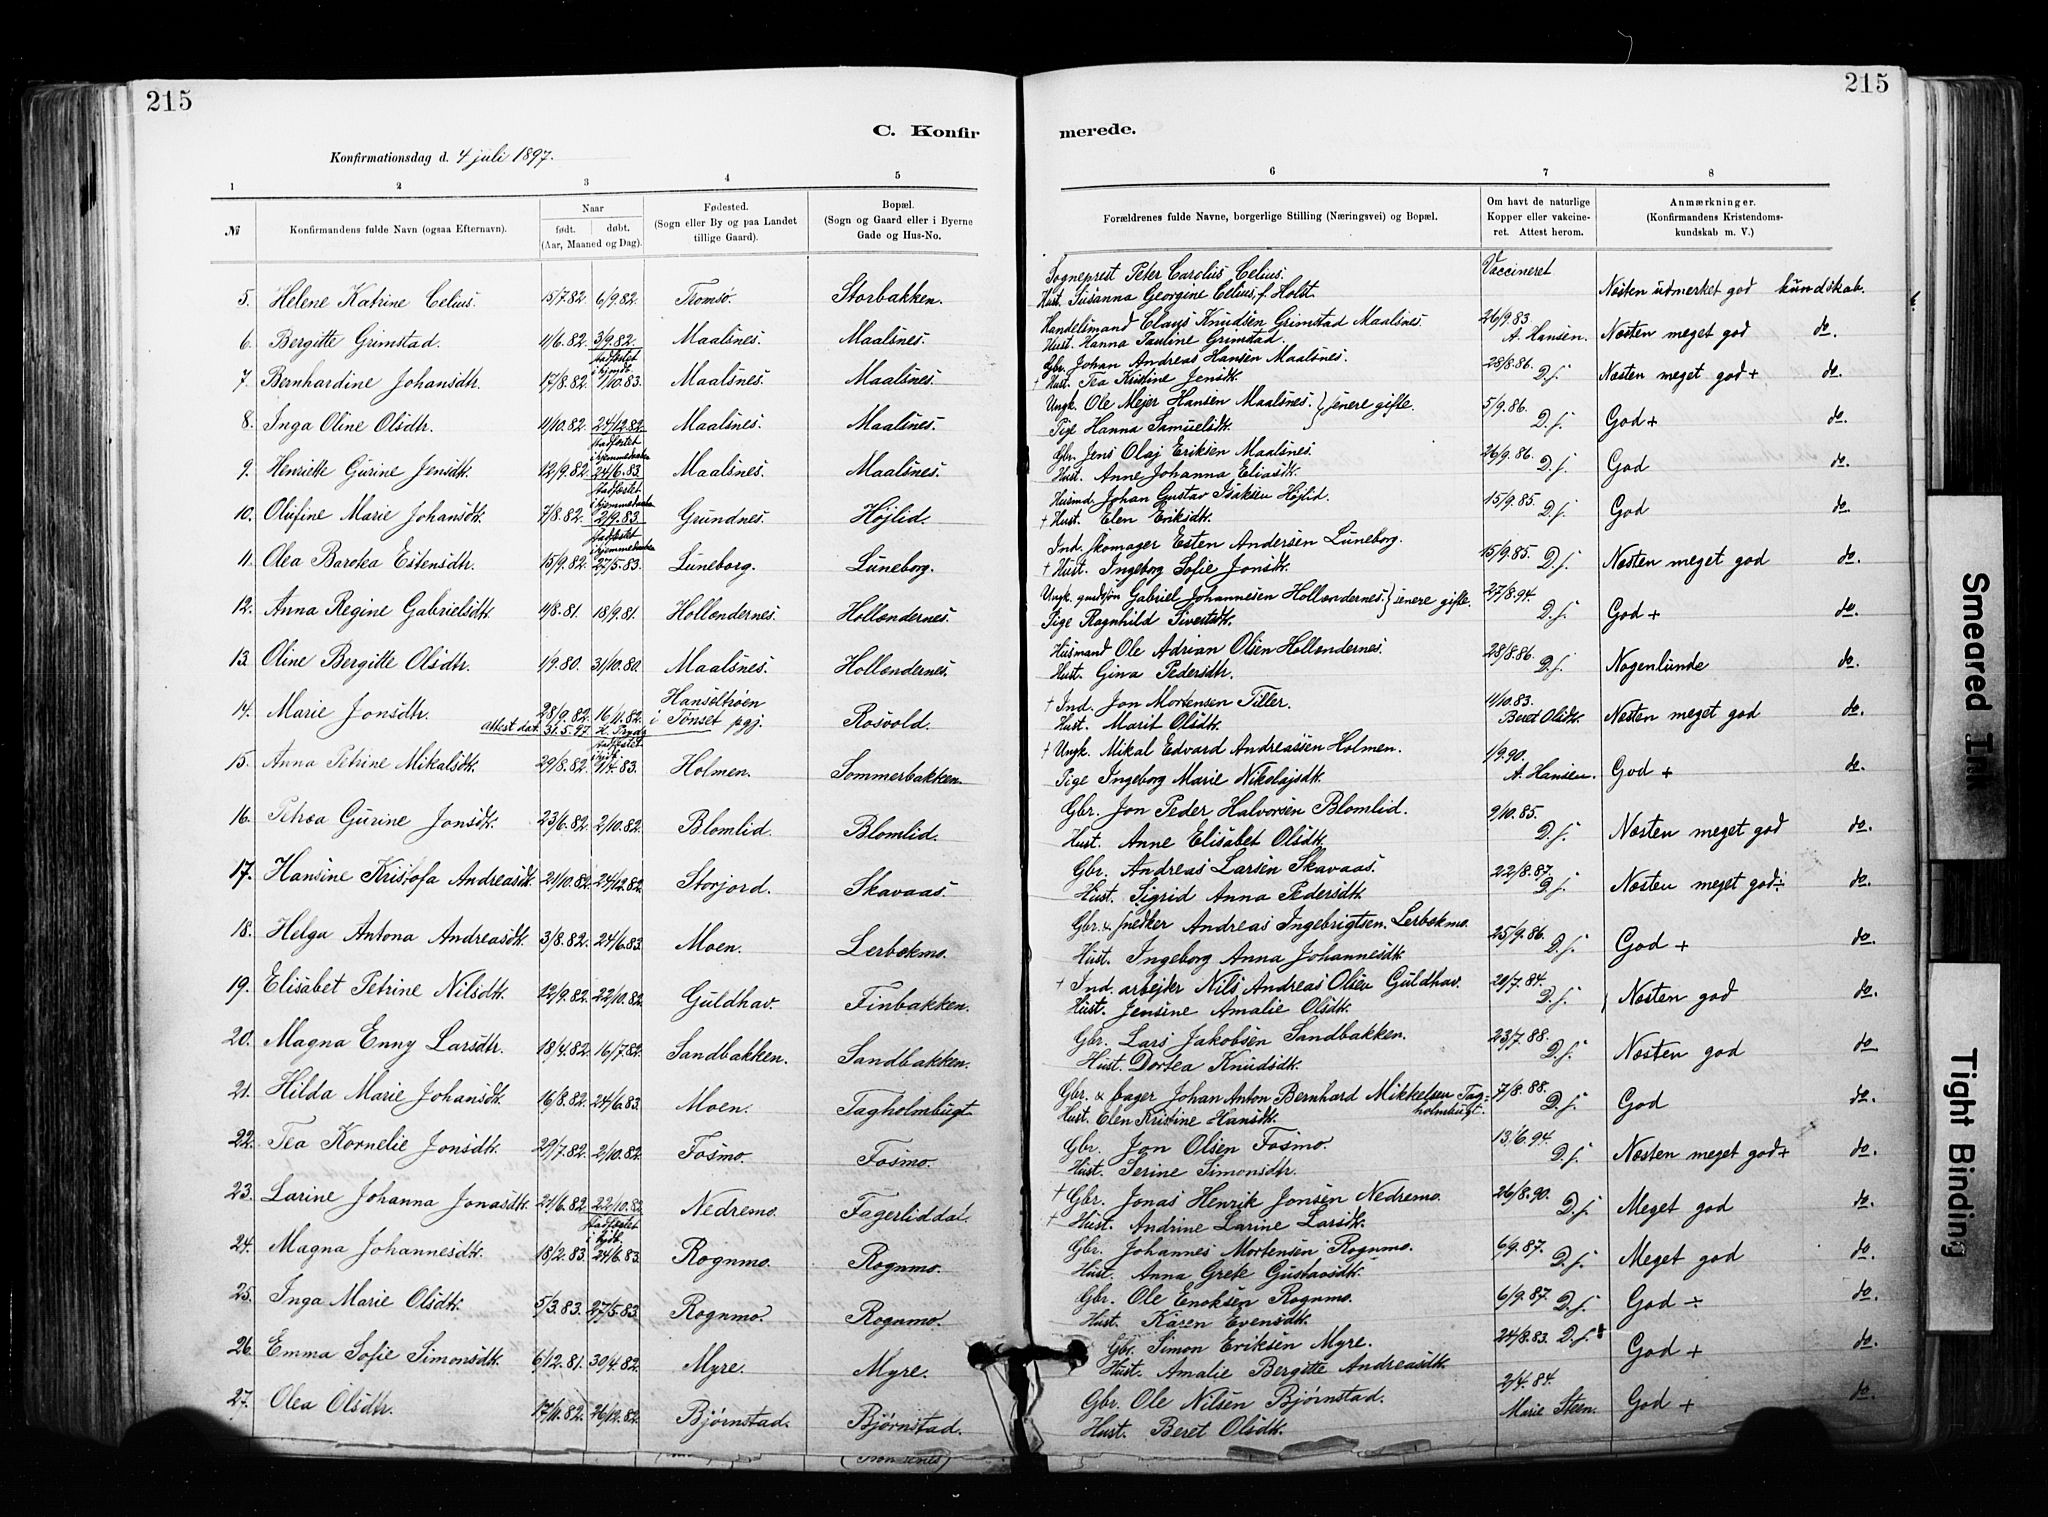 215
215
C. Konfirmerede.
Konfirmationsdag d. 4 juli 1897.
1 2 3 4 5 6 7 8
№ Konfirmandens fulde Navn (ogsaa Efternavn). Naar født. døbt. (Aar, Maaned og Dag). Fødested. (Sogn eller By og paa Landet tillige Gaard). Bopæl. (Sogn og Gaard eller i Byerne Gade og Hus-No. Forældrenes fulde Navne, borgerlige Stilling (Næringsvei) og Bopæl. Om havt de naturlige Kopper eller vakcineret. Attest herom. Anmærkninger. (Konfirmandens Kristendomskundskab m. V.)
5. Helene Katrine Celius. 15/7.82. 6/9.82. Tromsø. Storbakken. Sogneprest Peter Carolus Celius. Vaccineret Næsten udmerket god kundskab.
Hust. Susanna Georgine Celius, f. Holst
6. Bergitte Grimstad. 11/6.82. 3/9.82. Maalsnes. Maalsnes. Handelsmand Claus Knudsen Grimstad Maalsnes. 26/9.83. A. Hansen. Næsten meget god do.
Hust. Hanna Pauline Grimstad.
7. Bernhardine Johansdtr. 17/8.82. stadfestet i hjmdt. 1/10.83. Maalsnes. Maalsnes. Gbr. Johan Andreas Hansen Maalsnes. 28/8.86. D.s. Næsten meget god + do.
+ Hust. Tea Kristine Jensdt.
8. Inga Oline Olsdtr. 11/10.82. 24/12.82. Maalsnes. Maalsnes. Ungk. Ole Mejer Hansen Maalsnes. } senere gifte. 5/9.86. D.s. God + do.
Pige Hanna Samuelsdt.
9. Henriette Gurine Jensdt. 12/9.82. stadfestet i hjemmedaaben 24/6.83. Maalsnes. Maalsnes. Gbr. Jens Olaj Eriksen Maalsnes. 26/9.86. D.s. God do.
Hust. Anne Johanna Eliasdt.
10. Olufine Marie Johansdt. 7/8.82. stadfestet i hjemmedaaben 2/9.83. Grundnes. Højlid. Husmd. Johan Gustav Isaksen Højlid. 15/9.85. D.s. God do.
+ Hust. Elen Eriksdt.
11. Olea Barotea Estensdtr. 15/9.82. stadfestet i hjemmedaaben 27/5.83. Luneborg. Luneborg. Ind. skomager Esten Andersen Luneborg. 15/9.85. D.s. Næsten meget god do.
+ Hust. Ingeborg Sofie Jonsdt.
12. Anna Regine Gabrielsdt. 11/8.81. 18/9.81. Hollendernes. Hollendernes. Ungk. gaardsøn Gabriel Johannesen Hollendernes. } senere gifte. 27/8.94. D.s. God + do.
Pige Ragnhild Sivertsdt.
13. Oline Bergitte Olsdtr. 1/9.80. 31/10.80. Maalsnes. Hollendernes. Husmand Ole Adrian Olsen Hollendernes. 28/8.86. D.s. Nogenlunde do.
Hust. Gina Pedersdtr.
14. Marie Jonsdtr. 28/9.82. 16/11.82. Hanseltrøen i Tønset pgj. Rosvold. + Ind. Jon Mortensen Tiller. 11/10.83. Beret Olsdt. Næsten meget god do.
attest dat. 31.5.97. Hust. Marit Olsdt.
15. Anna Petrine Mikalsdt. 29/8.82. stadfestet i hjdt. 1/4.83. Holmen. Sommerbakken. + Ungk. Mikal Edvard Andreassen Holmen. 1/9.90. A. Hansen. God + do.
Pige Ingeborg Marie Nikolajsdt.
16. Petrea Gurine Jonsdt. 23/6.82. 2/10.82. Blomlid. Blomlid. Gbr. Jon Peder Halvorsen Blomlid. 9/10.85. D.s. Næsten meget god do.
Hust. Anne Elisabet Olsdt.
17. Hansine Kristofa Andreasdt. 21/10.82. 24/12.82. Storjord. Skavaas. Gbr. Andreas Larsen Skavaas. 22/8.87. D.s. Næsten meget god ÷ do.
Hust. Sigrid Anna Pedersdt.
18. Helga Antona Andreasdt. 3/8.82. 24/6.83. Moen. Lerbekmo. Gbr. & snedker Andreas Ingebrigtsen Lerbekmo. 25/9.86. D.s. God + do.
Hust. Ingeborg Anna Johannesdt.
19. Elisabet Petrine Nilsdt. 12/9.82. 22/10.82. Guldhav. Finbakken. + Ind. arbejder Nils Andreas Olsen Guldhav. 20/7.84. D.s. Næsten god do.
Hust. Jensine Amalie Olsdt.
20. Magna Enny Larsdtr. 18/4.82. 16/7.82. Sandbakken. Sandbakken. Gbr. Lars Jakobsen Sandbakken. 23/7.88. D.s. Næsten god do
Hust. Dortea Knudsdt.
21. Hilda Marie Johansdt. 16/8.82. 24/6.83. Moen. Tagholmbugt. Gbr. & bager Johan Anton Bernhard Mikkelsen Tagholmbugt. 7/8.88. D.s. God do.
Hust. Elen Kristine Hansdt.
22. Tea Kornelie Jonsdt. 29/7.82. 2/10.82. Fosmo. Fosmo. Gbr. Jon Olsen Fosmo. 13/6.94. D.s. Næsten meget god + do.
Hust. Serine Simonsdtr.
23. Larine Johanna Jonasdt. 21/6.82. 22/10.82. Nedremo. Fagerliddal. + Gbr. Jonas Henrik Jonsen Nedremo. 26/8.90. D.s. Meget god do.
+ Hust. Andrine Larine Larsdt.
24. Magna Johannesdt. 18/2.83. stadfestet i hjdt. 24/6.83. Rognmo. Rognmo. Gbr. Johannes Mortensen Rognmo. 6/9.87. D.s. Meget god do.
Hust. Anna Grete Gustavsdt.
25. Inga Marie Olsdt. 5/3.83. 27/5.83. Rognmo. Rognmo. Gbr. Ole Enoksen Rognmo. 6/9.87. D.s. God ÷ do.
Hust. Karen Evensdt.
26. Emma Sofie Simonsdt. 6/12.81. 30/4.82. Myre. Myre. Gbr. Simon Eriksen Myre. 24/8.83. D.s. God + do.
Hust. Amalie Bergitte Andreasdt.
27. Olea Olsdtr. 17/11.82. 26/12.82. Bjørnstad. Bjørnstad. Gbr. Ole Nilsen Bjørnstad. 2/4.84. Marie Steen. God + do.
Hust. Beret Olsdt.
Smeared Ink
Tight Binding